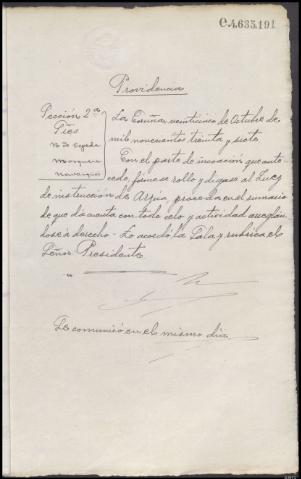 C.4.635.191
Providencia
Sección 2ª
Pios
Mosquera
Navarro
La Coruña, veinticinco de Octubre de
mil novecientos treinta y siete.
Con el parte de incoación que ante-
cede, fórmese rollo y dígase al Juez
de instrucción de Arzúa, proceda en el sumario
de que da cuenta con todo celo y actividad arreglán-
dose a derecho.- Lo acordó la Sala y rubrica el
Señor Presidente.
Se comunicó en el mismo día.